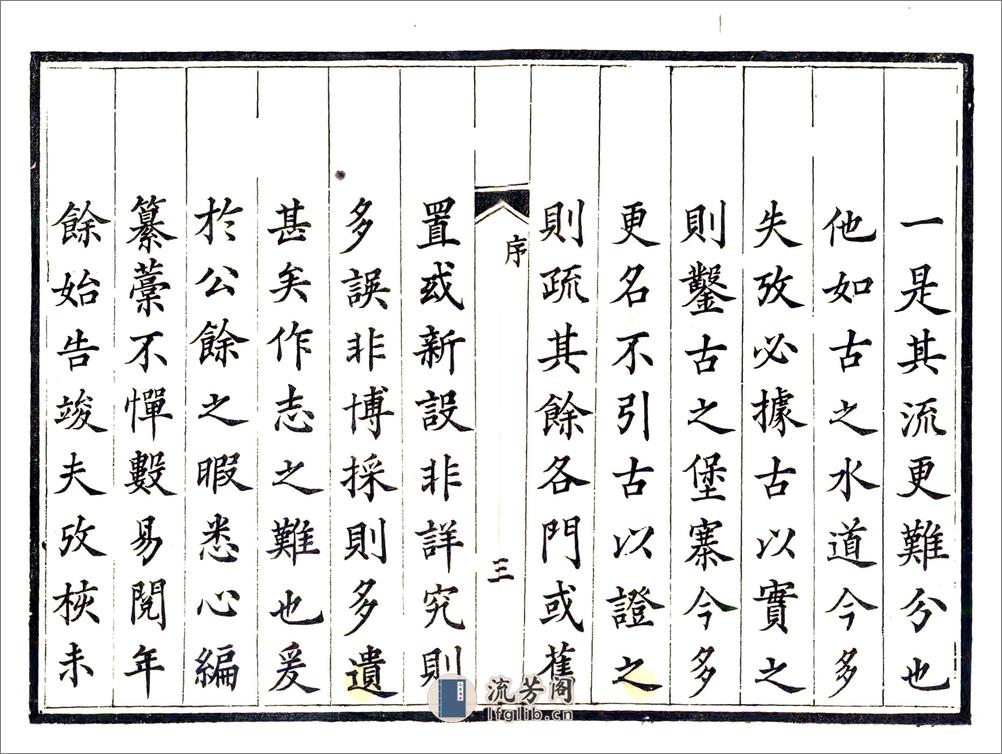 一是其流更難分也
他如古之水道今多
失攷必據古以實之
則鑿古之堡寨今多
更名不引古以證之
則疏其餘各門或舊
序
三
置或新設非詳究則
多誤非博採則多遺
甚矣作志之難也爰
於公餘之暇悉心編
纂藁不憚數易閱年
餘始告竣夫攷核未
流芳阁
lfglib.cn